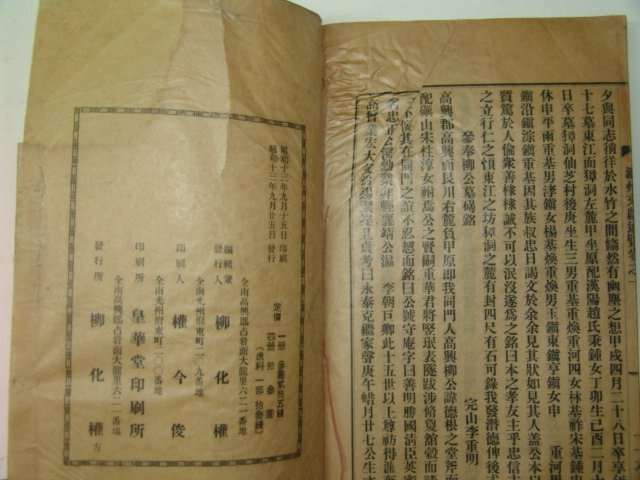 夕與同志徜徉於水竹之間翛然有幽塵之想甲戌四月二十八日卒享年
十七墓東江面獐洞左麓甲坐原配漢陽趙氏秉鍾女丁卯生己酉二月十
日卒墓獐洞仙芝村後庚坐生三男重基重煥重河四女林基祚宋基鍾忠
休申平雨重基男涍鎭女楊基煥重煥男玉鎭東鎭亨鎭女申 重河男
鎭沿鎭淙鎭重基因其族叔忠日謁文於余余見其狀如見其人盖公本以
質篤於人倫衆善棣棣誠不可以泯沒遂爲之銘曰本之孝友主乎忠信志
之立行仁之慎東江之坊獐洞之麓有封四尺有石可錄我發潛德俾後求
完山李重明
參奉柳公墓碣銘
高興郡高興面艮川右麓負甲原即我同門人高興柳公諱德根之堂斧而
配礪山宋杜淳女祔焉公之賢嗣重華君將竪珉表隧跋涉脩夐舘穀而請
不佞其在同門之誼不忍恝而銘之公號守庵字曰善明勝國淸臣英密
李朝戶卿此十五世以上尊祊得派奎
永泰克繼家聲庚午蜡月廿七公生
昭和十三年九月十五日 印刷
昭和十三年九月廿五日 發行
定價 一冊 參圓貳拾五錢
四冊 拾參圓
(送料 一部 拾參錢)
全南高興郡占岩面大龍里六二一番地
編輯兼
發行人 柳化權
全南光州府東町二一〇九番地
印刷人 權今俊
全南光州府東町二一〇〇番地
印刷所 皇華堂印刷所
全南高興郡占岩面大龍里六二一番地
發行所 柳化權方